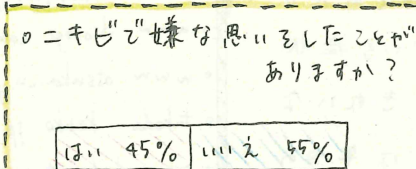 ○ニキビで嫌な思いをしたことが
ありますか？
はい 45% いいえ 55%